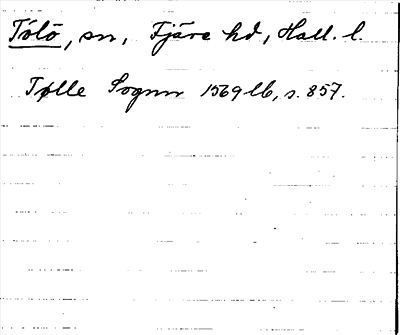 Tölö, sn, Fjäre hd, Hall. l.
Tølle Sognn 1569 lb, s. 857.